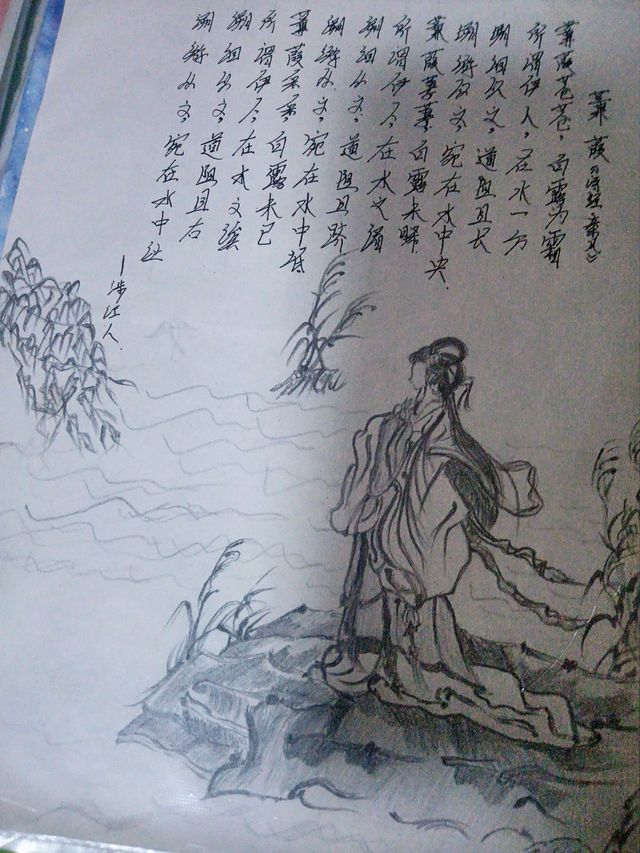 蒹葭《诗经·秦风》
蒹葭苍苍，白露为霜
所谓伊人，在水一方
溯洄从之，道阻且长
溯游从之，宛在水中央
蒹葭萋萋，白露未晞
所谓伊人，在水之湄
溯洄从之，道阻且跻
溯游从之，宛在水中坻
蒹葭采采，白露未已
所谓伊人，在水之涘
溯洄从之，道阻且右
溯游从之，宛在水中沚
—涉江人.